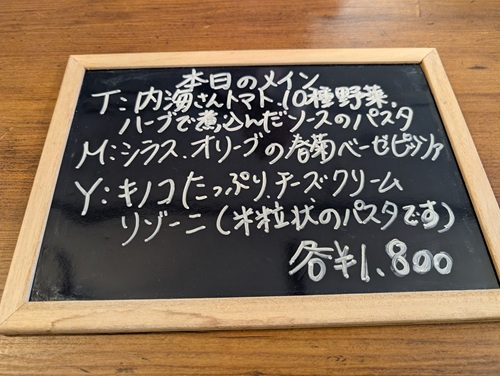 本日のメイン
T:内海さんトマト、10種野菜、
ハーブで煮込んだソースのパスタ
M:シラス、オリーブの春菊ベーゼピッツァ
Y:キノコたっぷり、チーズクリーム
リゾーニ(米粒状のパスタです)
各¥1.800